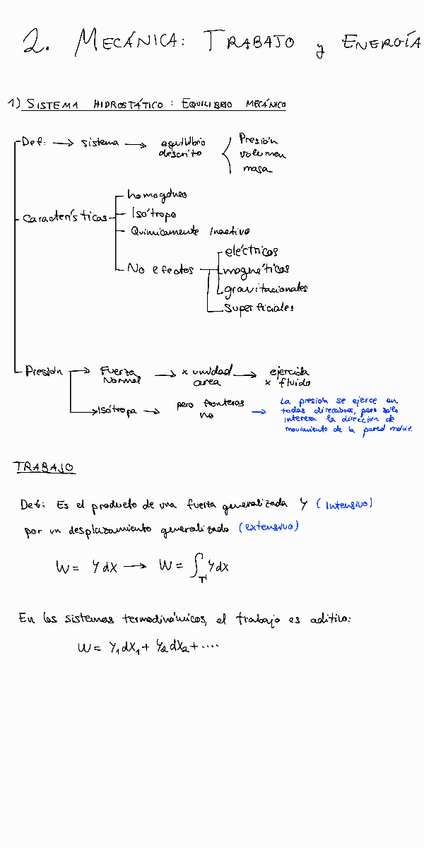 2. MECÁNICA: TRABAJO y ENERGÍA
1) SISTEMA HIDROSTÁTICO: EQUILIBRIO MECÁNICO
Def: → sistema → equilibrio descrito { Presión
volumen
masa
Características
homogéneo
Isótropo
Químicamente Inactivo
No efectos
eléctricos
magnéticos
gravitacionales
Superficiales
Presión → Fuerza Normal → x unidad área → ejercida x fluido
→ Isótropa → pero fronteras no →
La presión se ejerce en
todas direcciones, pero sólo
interesa la dirección de
movimiento de la pared móvil.
TRABAJO
Def: Es el producto de una fuerza generalizada Y (intensivo)
por un desplazamiento generalizado (extensivo)
W = Y dX → W = ∫ Y dX
En los sistemas termodinámicos, el trabajo es aditivo:
W = Y₁dX₁ + Y₂dX₂ + ....